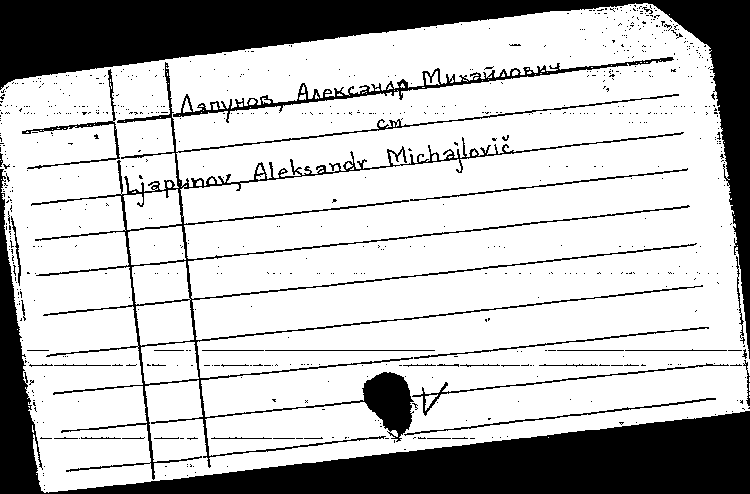 Ляпунов, Александр Михайлович
см
Ljapunov, Aleksandr Michajlovič